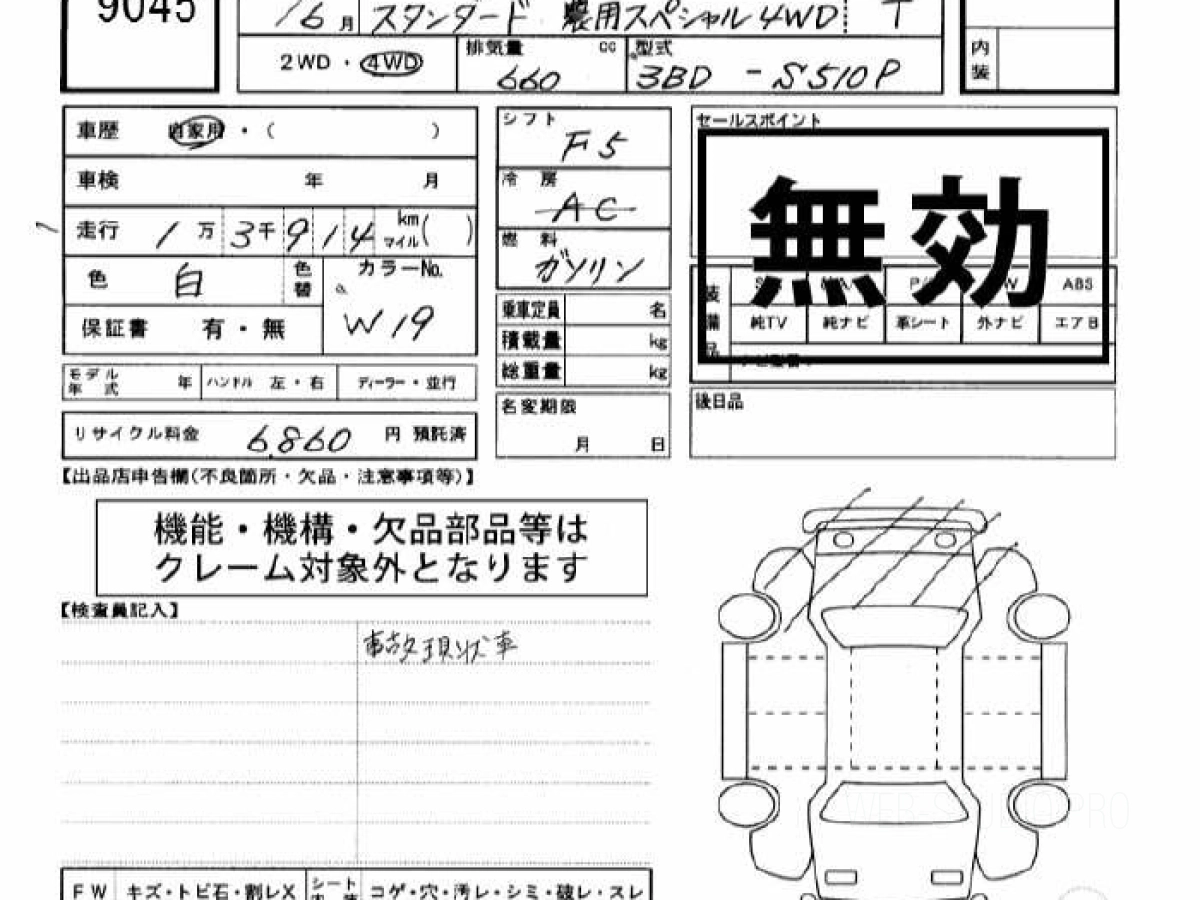 9045
16月 スタンダード 農用スペシャル4WD T
2WD・4WD 排気量 660 cc 型式 3BD-S510P
内装
車歴 自家用・( )
車検 年 月
走行 1万3千914 km マイル( )
色 白 色替 カラーNo. W19
保証書 有・無
モデル年式 年 ハンドル 左・右 ディーラー・並行
リサイクル料金 6,860 円 預託済
シフト F5
冷房 AC
燃料 ガソリン
乗車定員 名
積載量 kg
総重量 kg
名変期限
月 日
セールスポイント
無効
装備品 ABS
純TV 純ナビ 革シート 外ナビ エアB
後日品
【出品店申告欄(不良箇所・欠品・注意事項等)】
機能・機構・欠品部品等は
クレーム対象外となります
【検査員記入】
事故現状車
FW キズ・トビ石・割レX シート コゲ・穴・汚レ・シミ・破レ・スレ